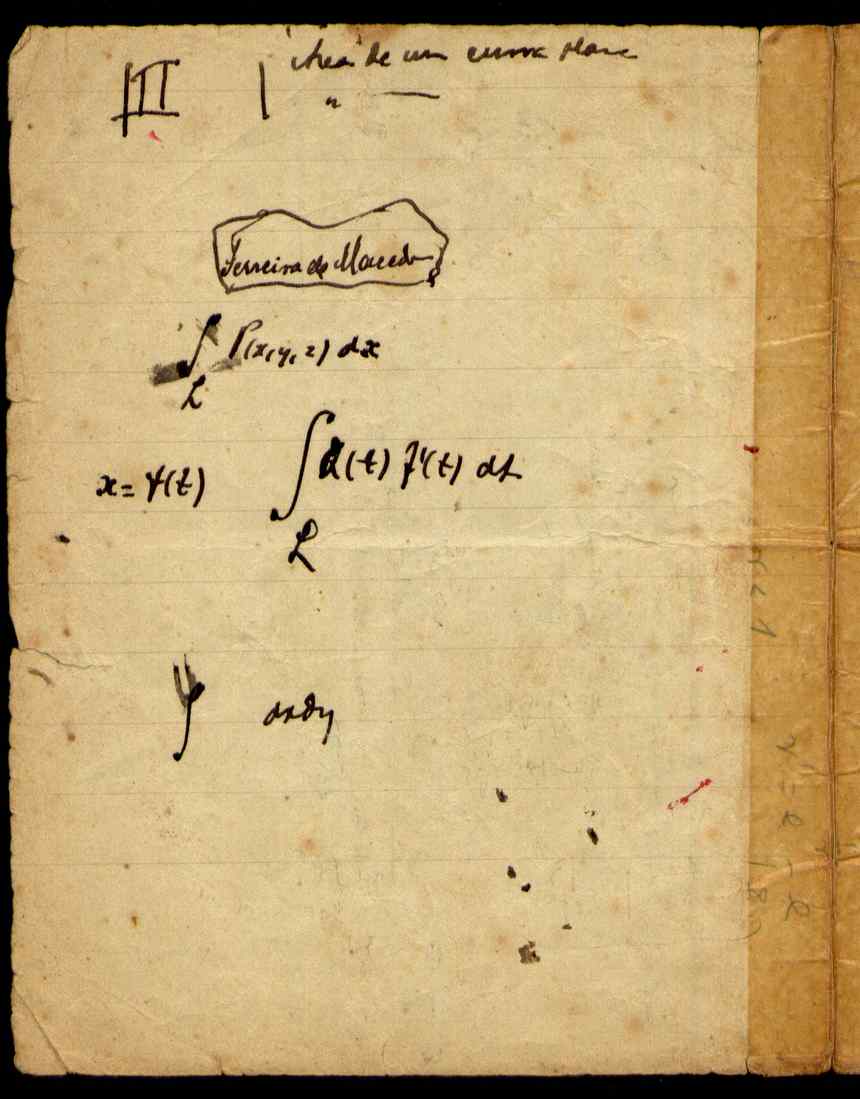 III | Área de um curva plana
" —
Ferreira de Macedo
∫ P(x,y,z) dx
L
x = ψ(t) ∫ (t) ψ'(t) dt
L
∫ dxdy